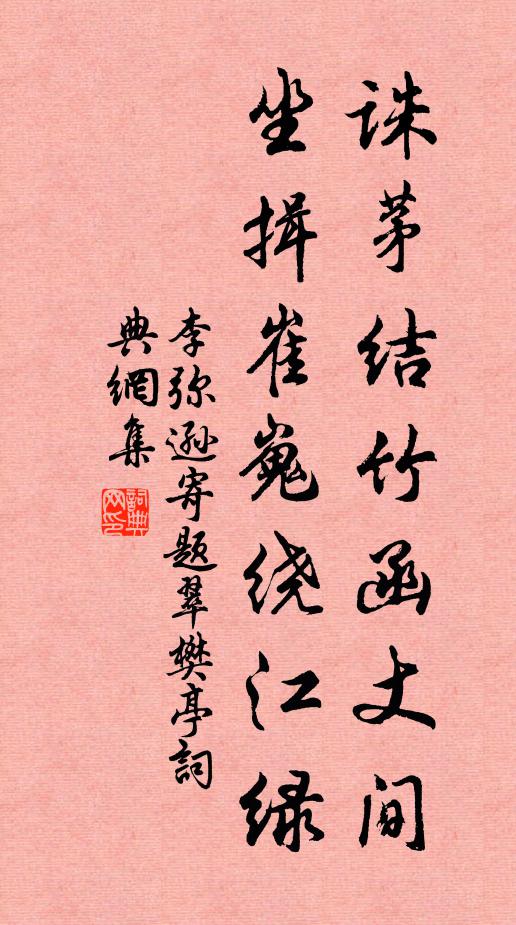 诛茅结竹函丈间
坐揖崔嵬绕江绿
李弥逊寄题翠樊亭詞
典網集
詞典網印